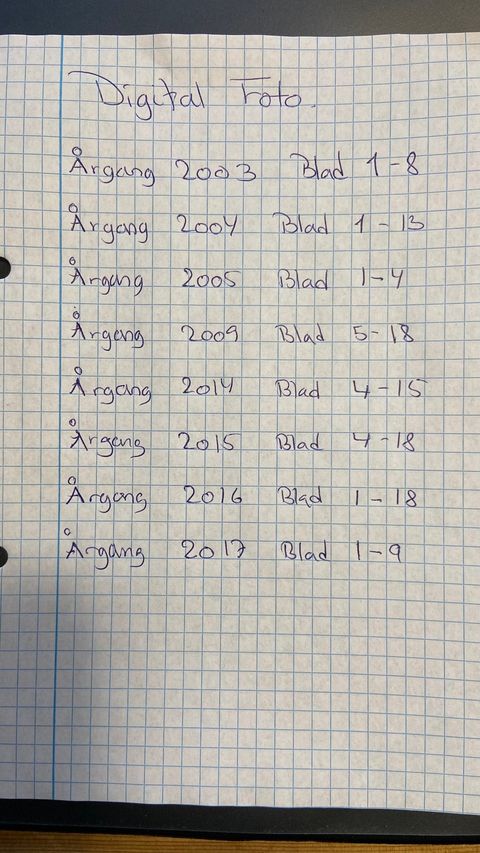 Digital Foto.
Årgang 2003 Blad 1-8
Årgang 2004 Blad 1-13
Årgang 2005 Blad 1-4
Årgang 2009 Blad 5-18
Årgang 2014 Blad 4-15
Årgang 2015 Blad 4-18
Årgang 2016 Blad 1-18
Årgang 2017 Blad 1-9